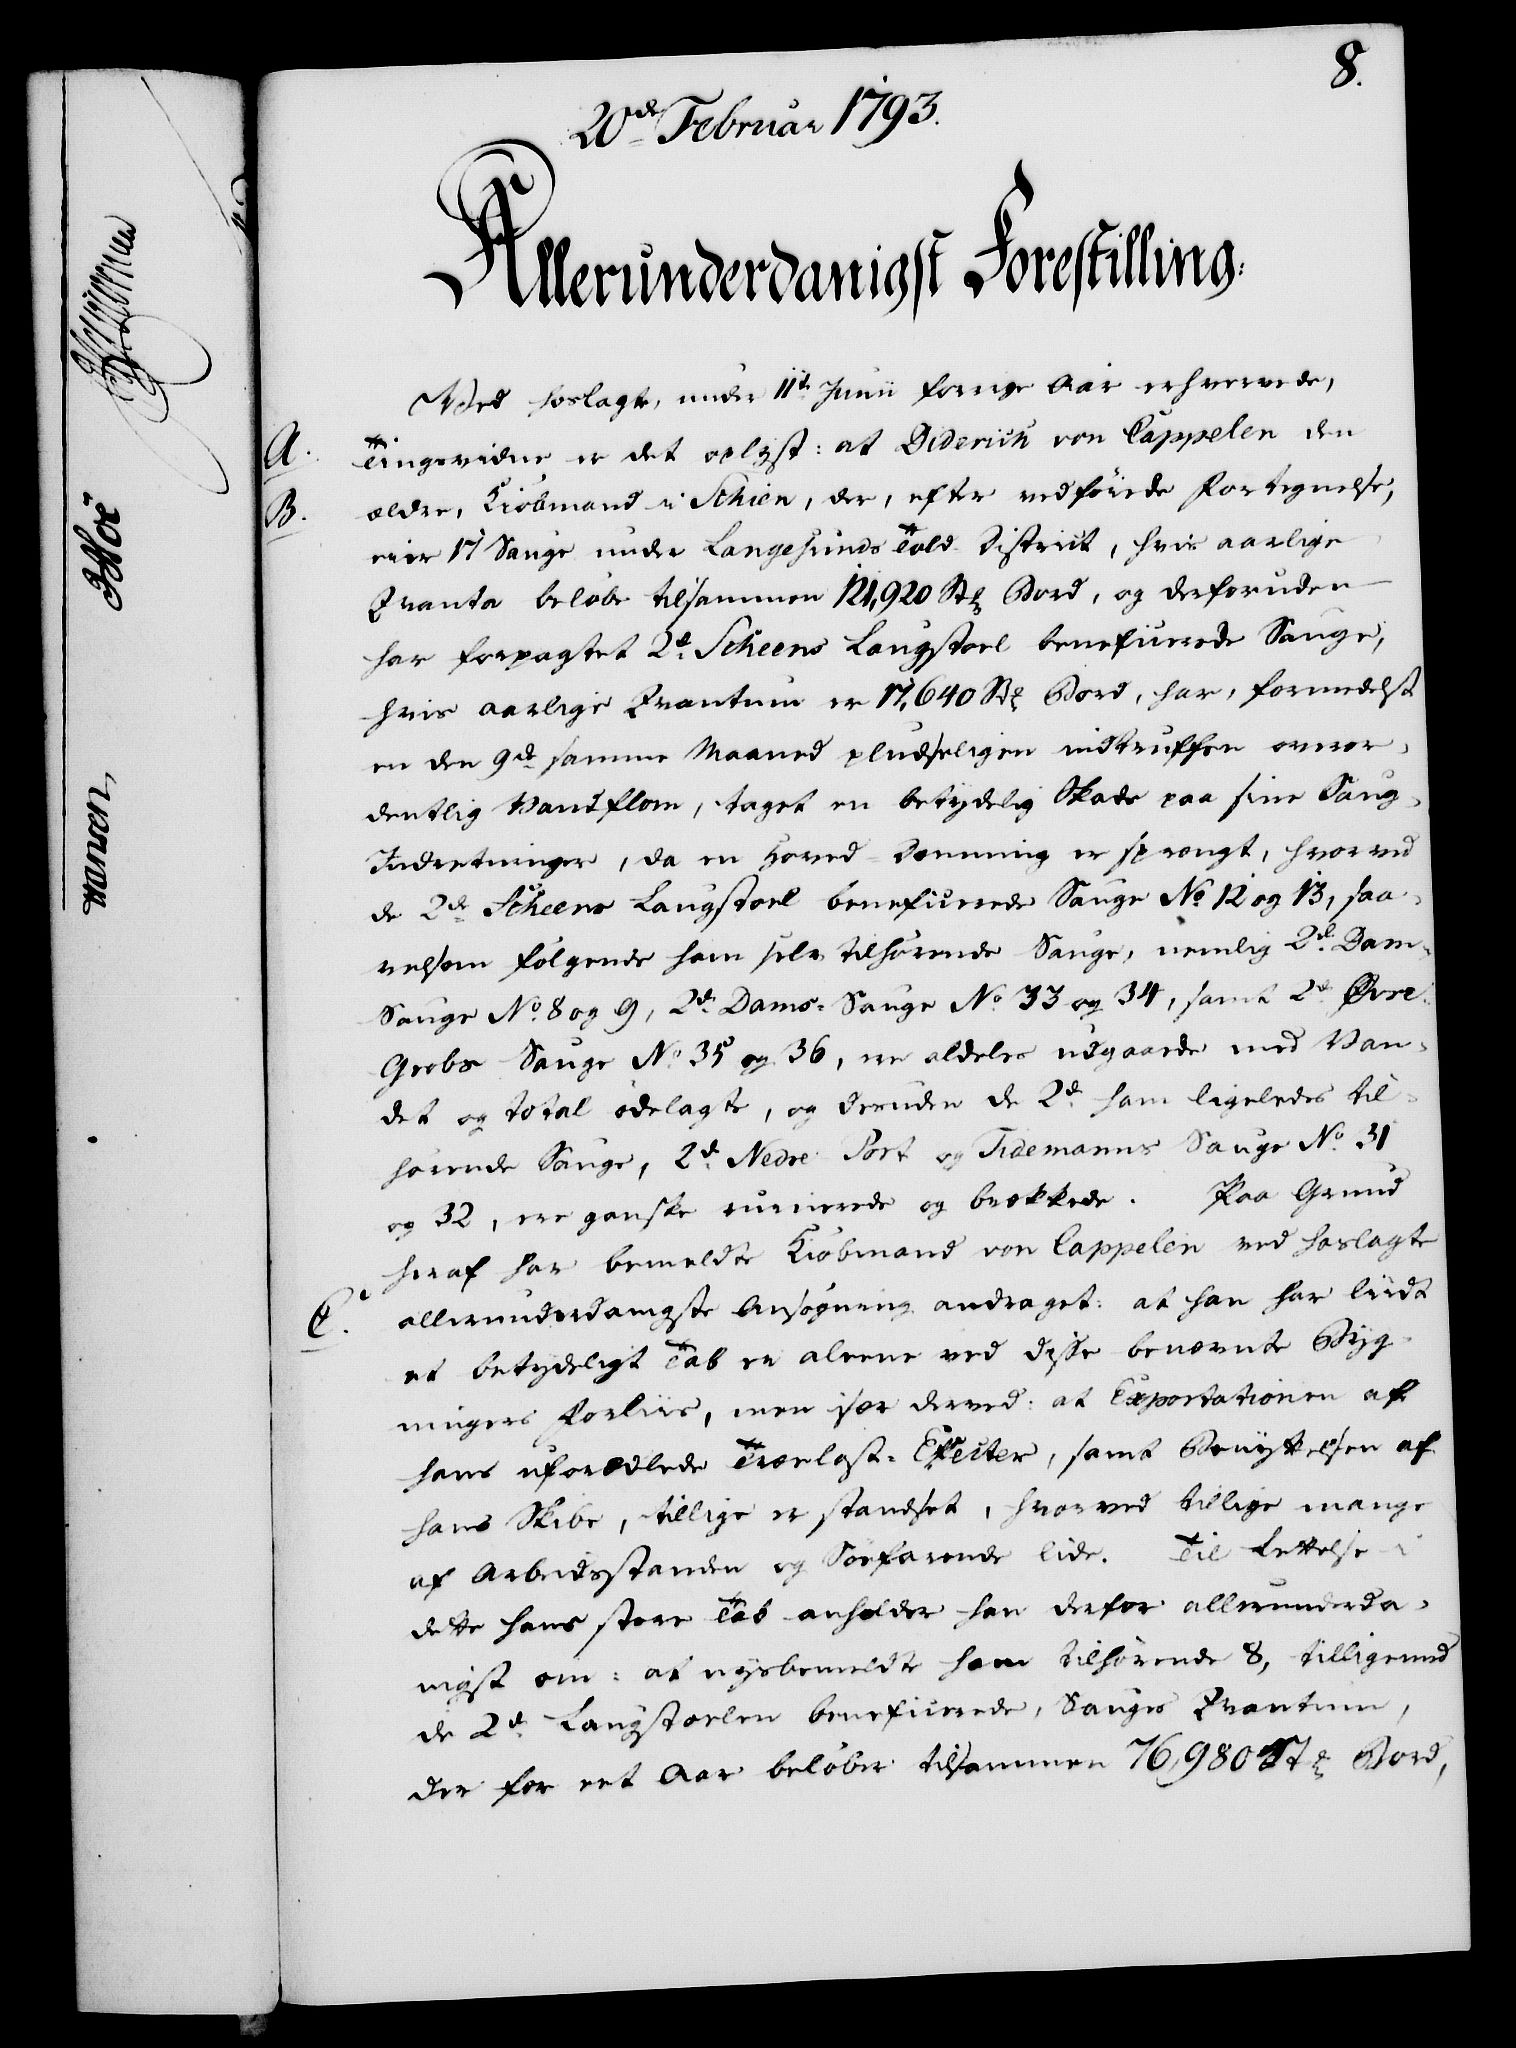 8.
20de Februar 1793.
Allerunderdanigst Forestilling:
Ved hoslagte, under 11te Junii forrige Aar erhvervede,
A. Tingsvidne er det oplyst: at Diderich von Cappelen den
B. ældre, Kiøbmand i Schien, der, efter vedføiede Fortegnelse,
eier 17 Sauge under Langesunds Told District, hvis aarlige
Qvanta beløbe tilsammen 121,920 Stk Bord, og desforuden
har forpagtet 2de Scheens Laugstoel beneficerede Sauge,
hvis aarlige Qvantum er 17,640 Stk Bord, har, formedelst
en den 9de samme Maaned pludseligen indtruffen overor-
dentlig Vandflom, taget en betydelig Skade paa sine Saug-
Indretninger, da en Hoved-Dæmning er sprængt, hvorved
de 2de Scheens Laugstoel beneficerede Sauge No 12 og 13, saa-
velsom følgende ham selv tilhørende Sauge, nemlig 2de Dam-
Sauge No 8 og 9, 2de Dams-Sauge No 33 og 34, samt 2de Øvre-
Grobs Sauge No 35 og 36, ere aldeles udgaaede med Van-
det og total ødelagte, og desuden de 2de ham ligeledes til-
hørende Sauge, 2de Nedre Port og Tidemanns Sauge No 31
og 32, ere ganske ruinerede og brækkede. Paa Grund
heraf har bemeldte Kiøbmand von Cappelen ved hoslagte
C. allerunderdanigste Ansøgning andraget: at han har liidt
et betydeligt Tab ei aleene ved disse benævnte Byg-
ningers Forliis, men især derved: at Exportationen af
hans uforædlede Trælast-Effecter, samt Benyttelsen af
hans Skibe, tillige er standset, hvorved tillige mange
af Arbeidsstanden og Søefarende lide. Til Lettelse i
dette hans store Tab anholder han derfor allerunderda-
nigst om: at nysbemeldte ham tilhørende 8, tilligemed
de 2de Laugstoelen beneficerede, Sauges Qvantum,
der for eet Aar beløber tilsammen 76,980 Stk Bord,